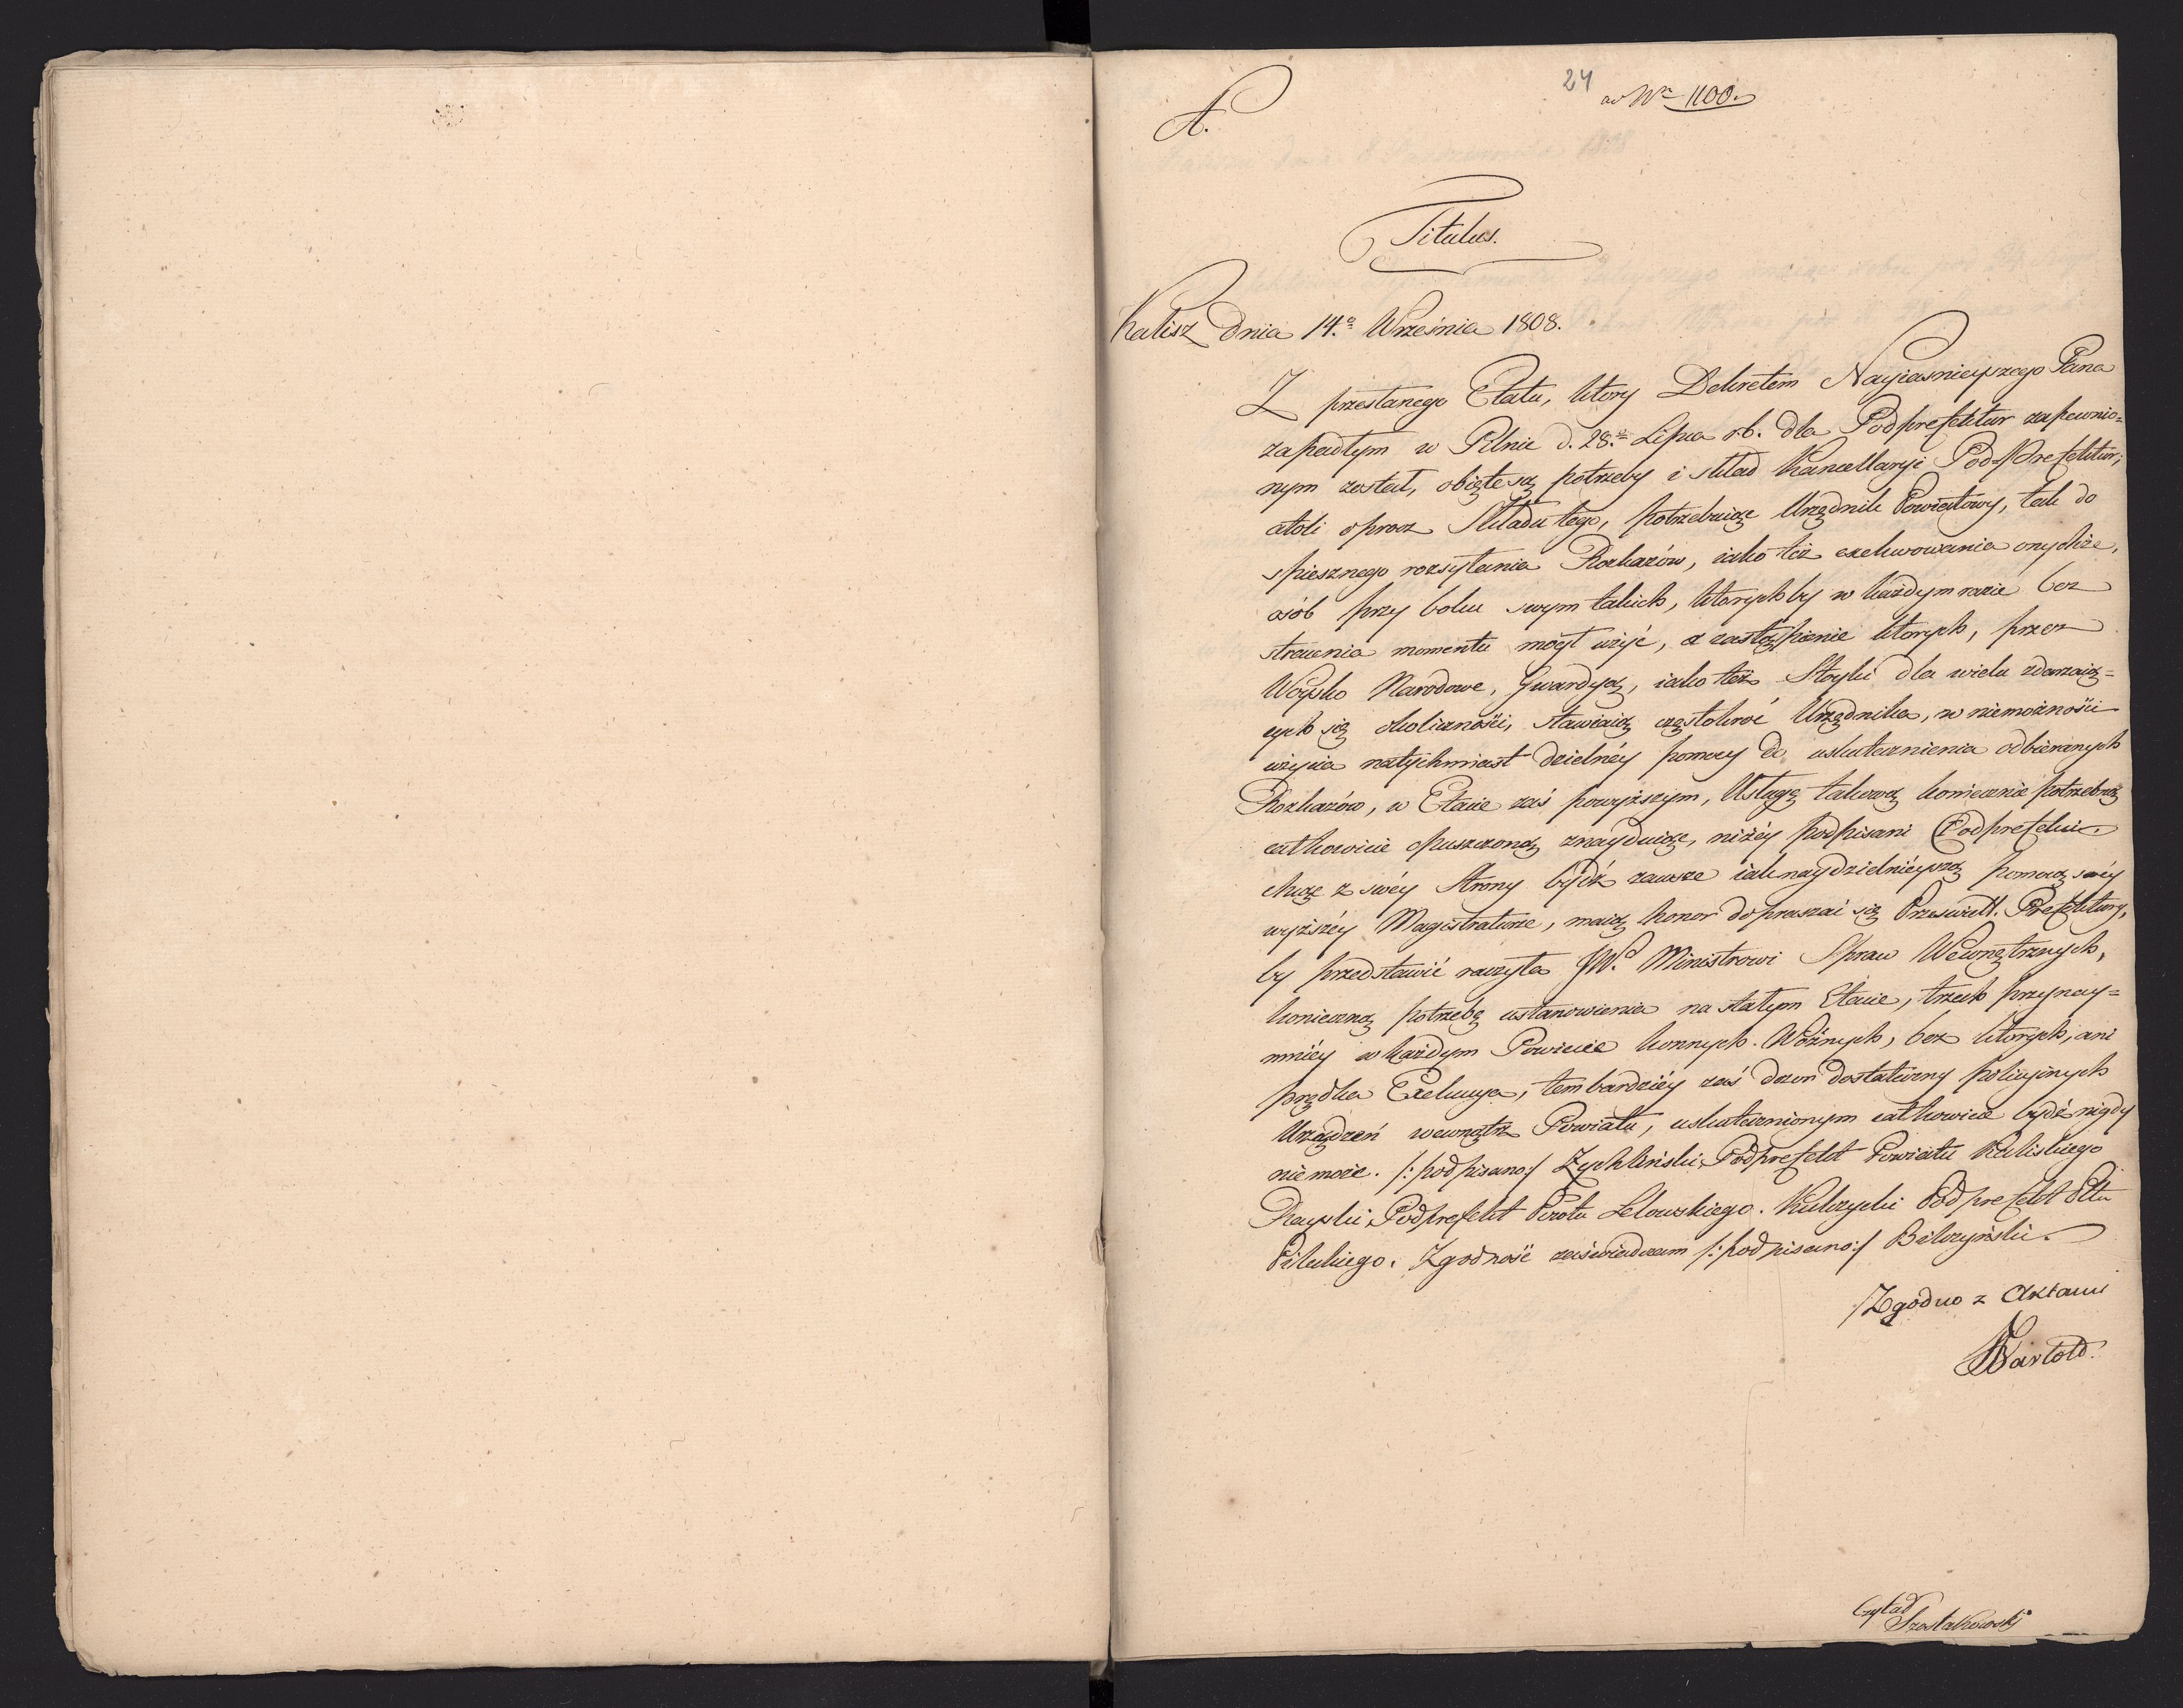 24
ad Nr 1100.
A.
Titulus.
Kalisz dnia 14.º Września 1808.
Z przesłanego Etatu, ktory Dekretem Nayiasnieyszego Pana
zapadłym w Pilnie d. 28.º Lipca r.b. dla Podprefektur zapewnio=
nym został, obięte są potrzeby i skład Kancellaryi Pod-Prefektur,
atoli oprocz Składu tego, potrzebuiąc Urzędnik Powiatowy, tak do
spiesznego rozsyłania Rozkazów, iako też exekwowania onychże,
osób przy boku swym takich, ktorych by w każdym razie bez
stracenia momentu mógł użyć, a zastąpienie ktorych, przez
Woysko Narodowe, Gwardyą, iako też Stoyki dla wielu zdarzaią=
cych się okoliczności, stawiaią częstokroć Urzędnika, w niemożności
użycia natychmiast dzielnéy pomocy do uskutecznienia odbieranych
Rozkazów, w Etacie zaś powyższym, Usługę takową koniecznie potrzebną
całkowicie opuszczoną znayduiąc, niżéy podpisani Podprefekci
chcąc z swéy Strony bydź zawsze iak naydzielnieyszą pomocą swéy
wyższéy Magistraturze, maią honor dopraszać się Przeświett. Prefektury,
by przedstawić raczyła JW.º Ministrowi Spraw Wewnętrznych,
konieczną potrzebę ustanowienia na stałym Etacie, trzech przynay=
mniéy w każdym Powiecie konnych Woźnych, bez ktorych, ani
prędka Exekucya, tem bardziéy zaś dozor dostateczny policyinych
Urządzeń wewnątrz Powiatu, uskutecznionym całkowicie bydź nigdy
nie może. /: podpisano:/ Zychliński Podprefekt Powiatu Kaliskiego
Podprefekt Pwtu Lelowskiego. Kulczycki Podprefekt Pttu
Pileckiego. Zgodność zaświadczam /: podpisano:/ Bilczyński.
Zgodno z Aktami
Bartold.
Czytał
Szostakowski